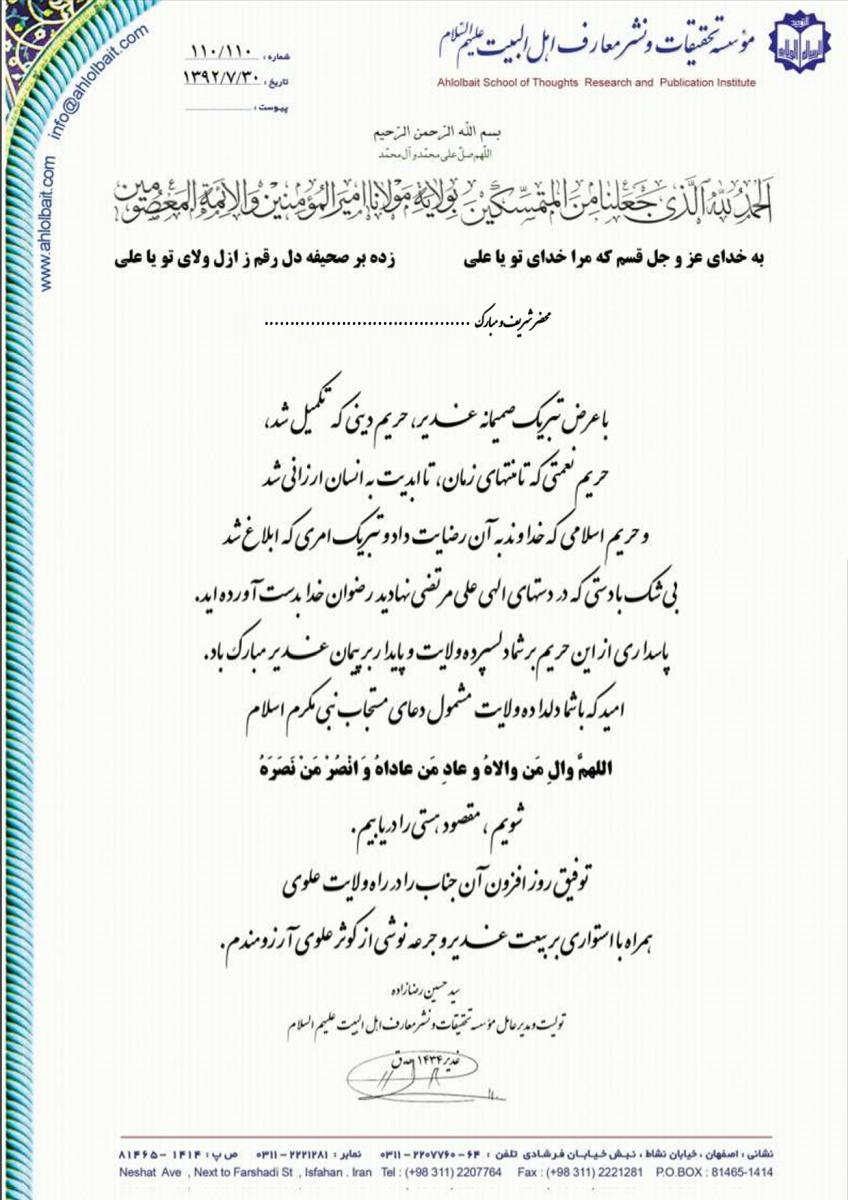 مؤسسه تحقیقات و نشر معارف اهل البیت علیهم السلام
Ahlolbait School of Thoughts Research and Publication Institute
شماره : ۱۱۰/۱۱۰
تاریخ : ۱۳۹۲/۷/۳۰
پیوست :
info@ahlolbait.com
www.ahlolbait.com
بسم الله الرحمن الرحیم
اللهم صل علی محمد و آل محمد
الحَمدُ لِلّهِ الَّذی جَعَلَنا مِنَ المُتَمَسِّکینَ بِوِلایَةِ مَولانا اَمیرِ المُؤمِنینَ وَالاَئِمَّةِ المَعصُومین
به خدای عز و جل قسم که مرا خدای تو یا علی زده بر صحیفه دل رقم ز ازل ولای تو یا علی
محضر شریف و مبارک ........................................
با عرض تبریک صمیمانه غدیر، حریم دینی که تکمیل شد،
حریم نعمتی که تا منتهای زمان، تا ابدیت به انسان ارزانی شد
و حریم اسلامی که خداوند به آن رضایت داد و تبریک امری که ابلاغ شد
بی شک با دستی که در دستهای الهی علی مرتضی نهادید رضوان خدا بدست آورده اید.
پاسداری از این حریم بر شما دلسپرده ولایت و پایدار بر پیمان غدیر مبارک باد.
امید که با شما دلداده ولایت مشمول دعای مستجاب نبی مکرم اسلام
اللهمَّ والِ مَن والاهُ و عادِ مَن عاداهُ وَ انْصُرْ مَنْ نَصَرَهُ
شویم، مقصود هستی را دریابیم.
توفیق روز افزون آن جناب را در راه ولایت علوی
همراه با استواری بر بیعت غدیر و جرعه نوشی از کوثر علوی آرزومندم.
سید حسین رضازاده
تولیت و مدیر عامل مؤسسه تحقیقات و نشر معارف اهل البیت علیهم السلام
غدیر ۱۴۳۴ ه‍.ق
نشانی : اصفهان ، خیابان نشاط ، نبش خیابان فرشادی تلفن : ۶۴-۲۲۰۷۷۶۰-۰۳۱۱ نمابر : ۲۲۲۱۲۸۱-۰۳۱۱ ص پ : ۱۴۱۴-۸۱۴۶۵
Neshat Ave , Next to Farshadi St , Isfahan . Iran Tel : (+98 311) 2207764 Fax : (+98 311) 2221281 P.O.BOX : 81465-1414